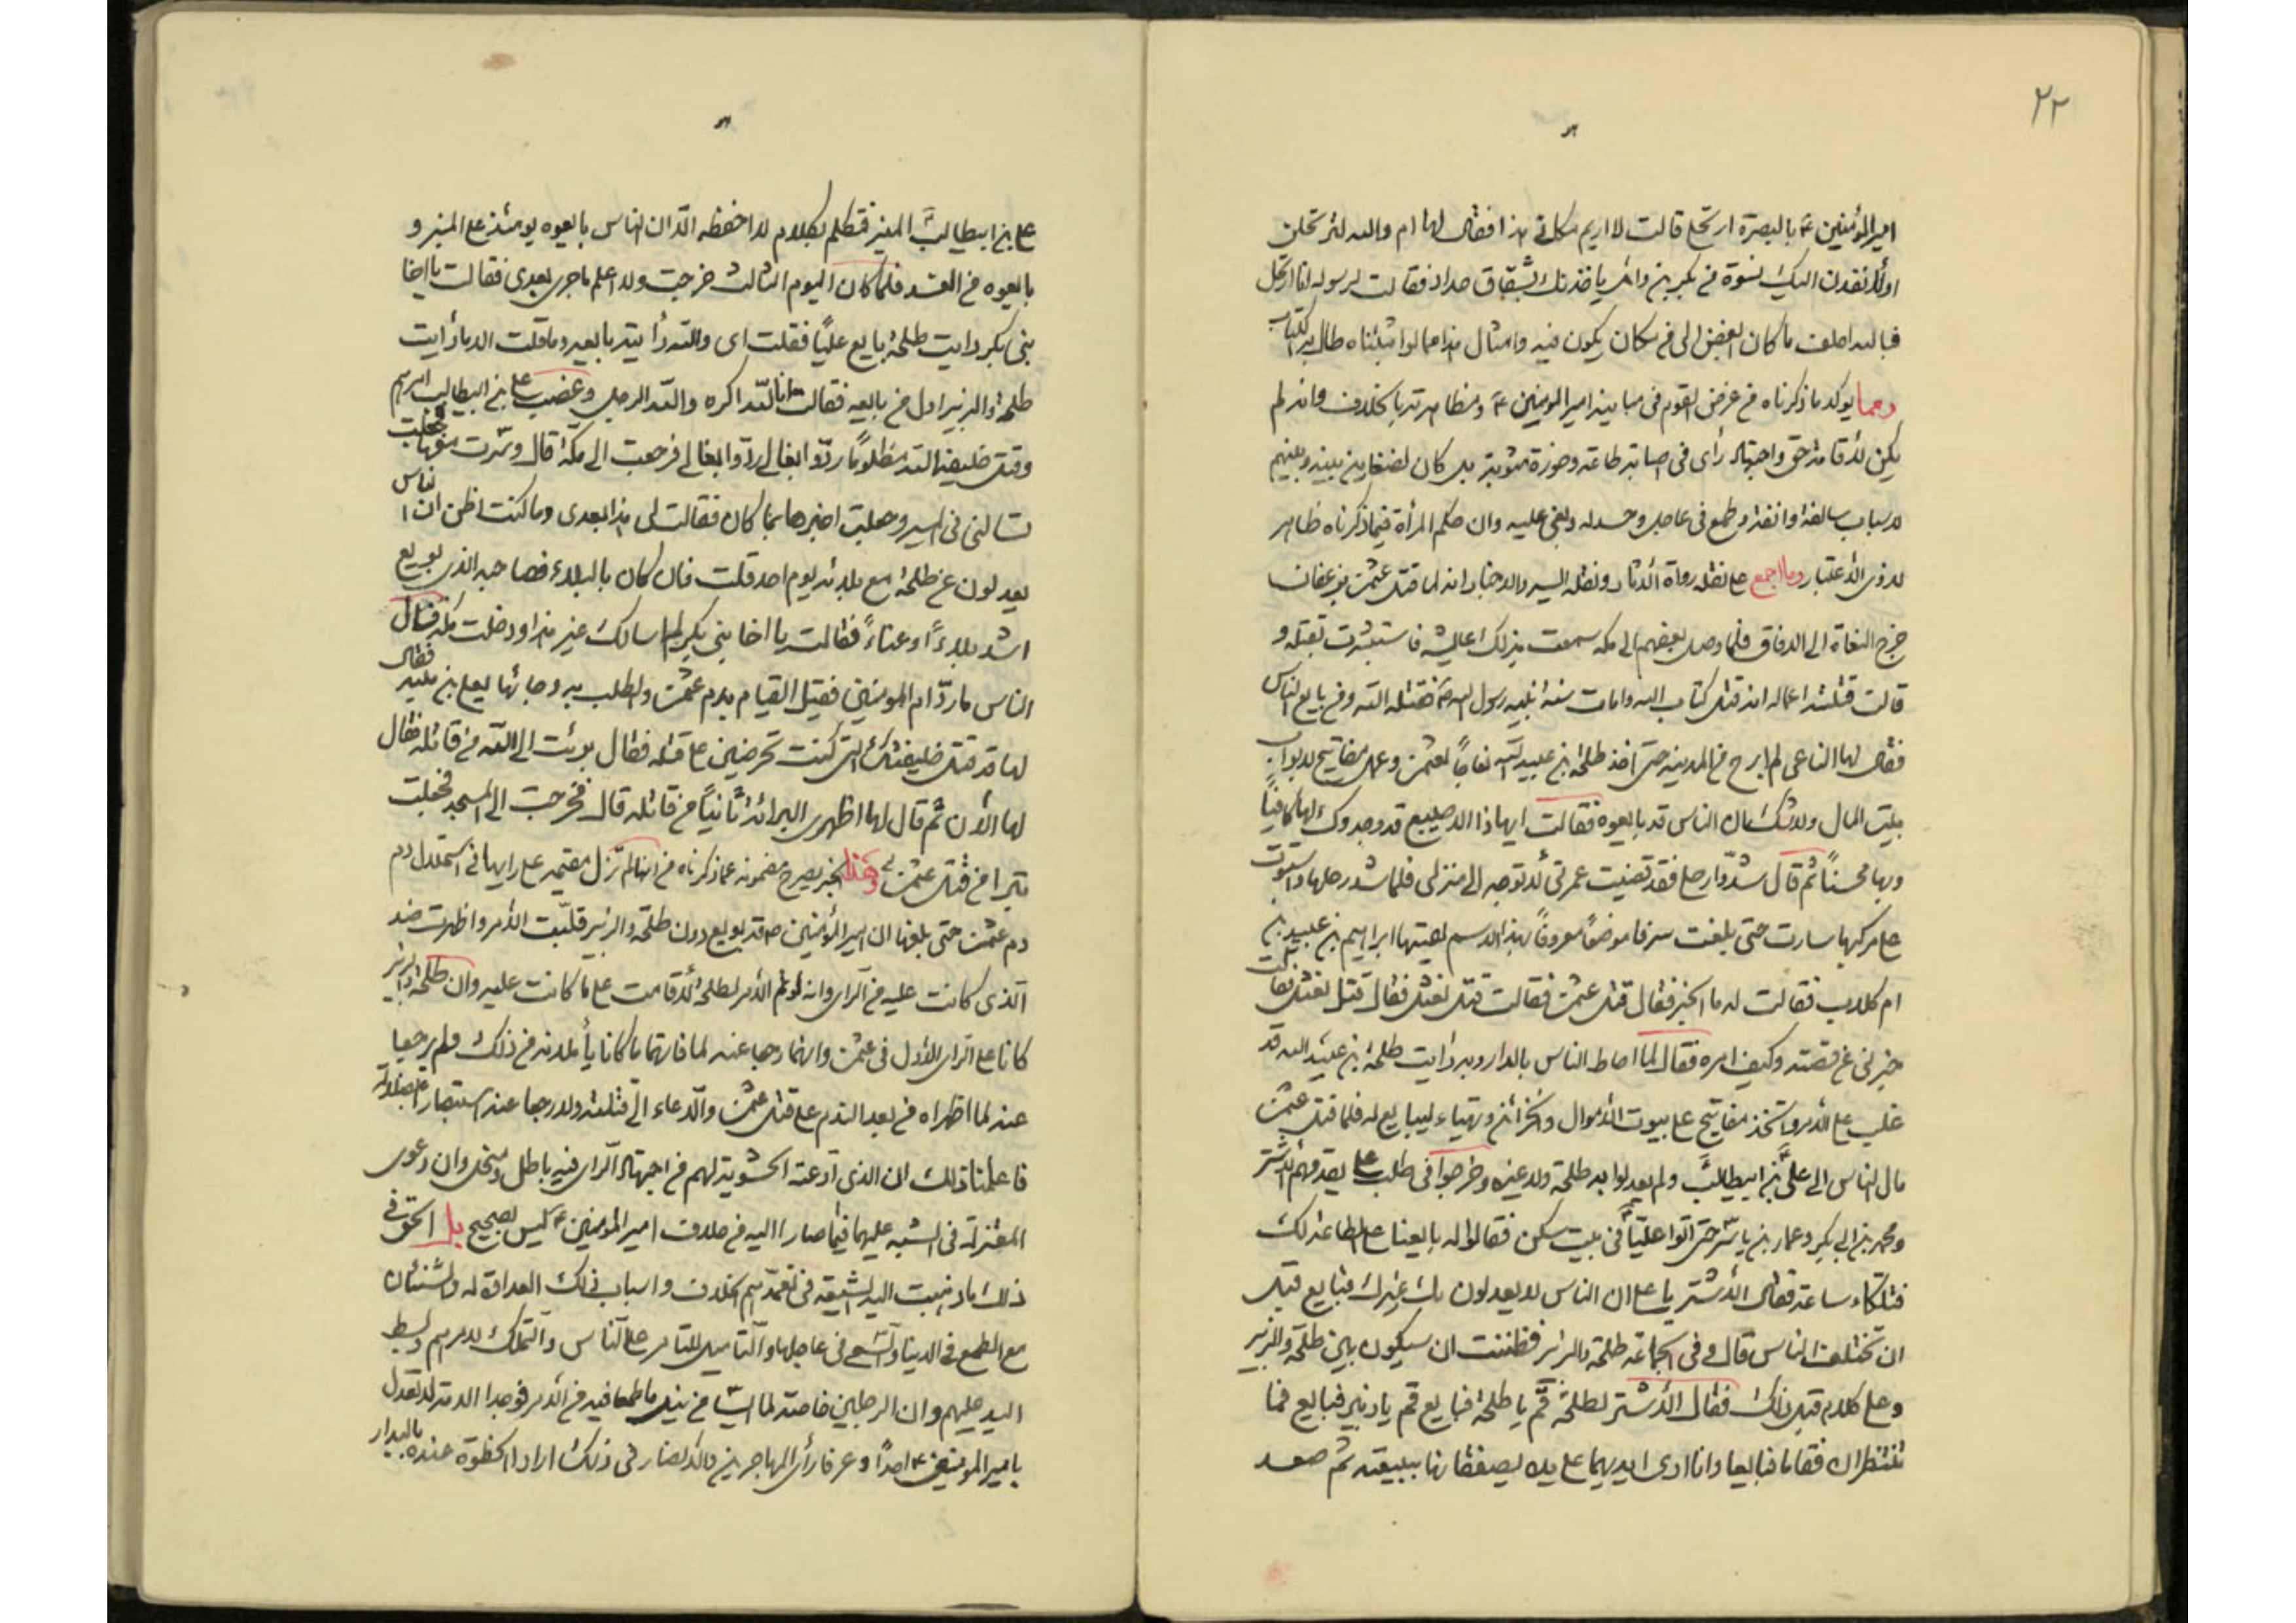 ٢٢
امير المؤمنين ع بالبصرة ارتحلى قالت لا اريم مكانى هذا فقال لها ام والله لترتحلن
اولأنفذن اليك نسوة من بكر بن وائل ياخذنك بشقاق حداد فقالت لرسوله انا ارتحل
فبالله احلف ما كان ابغض الى من مكان يكون فيه وامثال هذا مما لو اثبتناه طال به الكتاب
ومما يؤكد ما ذكرناه من غرض القوم فى مباينة امير المومنين ع ومظاهرته بالخلاف وانه لم
يكن لاقامة حق واجتهاد رأى فى اصابة طاعة وحوزة مثوبة بل كان لضغاين بينه وبينهم
لاسباب سالفة وانفة وطمع فى عاجل وحسد له وبغى عليه وان حكم المرأة فيما ذكرناه ظاهر
لذوى الأعتبار وما اجمع على نقله رواة الآثار ونقلة السير والاخبار انه لما قتل عثمن بن عفان
خرج النعاة الى الافاق فلما وصل بعضهم الى مكة سمعت بذلك عايشه فاستبشرت بقتله و
قالت قتلته اعماله انه قتل كتاب الله وامات سنة نبيه رسول الله ص فقتله الله ومن بايع الناس
فقال لها الناعى لم ابرح من المدينة حتى اخذ طلحة بن عبيد الله نعاجاً لعثمن وعمل مفاتيح لابواب
بيت المال ولا شك ان الناس قد بايعوه فقالت ايها ذا الاصيبع قد وجدوك لها كافياً
وبها محسناً ثم قال شدّوا رحلى فقد قضيت عمرتى لأتوجه الى منزلى فلما شد رحلها واستوت
على مركبها سارت حتى بلغت سرفا موضعاً معروفاً بهذا الاسم لقيتها ابراهيم بن عبيد بن
ام كلاب فقالت له ما الخبر فقال قتل عثمن فقالت قتل نعثل فقال قتل نعثل فقالت
خبرنى عن قصته وكيف امره فقال لما احاط الناس بالدار وبه رأيت طلحة بن عبيد الله قد
غلب على الأمر واتخذ مفاتيح على بيوت الأموال والخزائن وتهياء ليبايع له فلما قتل عثمن
مال الناس الى على بن ابيطالب ولم يعدلوا به طلحة ولا غيره وخرجوا فى طلب على يقدمهم الأشتر
ومحمد بن ابى بكر وعمار بن ياسر حتى اتوا عليّاً فى بيت سكن فقالوا له بايعنا على الطاعة لك
فتلكاء ساعة فقال الأشتر يا على ان الناس لا يعدلون بك غيرك فبايع قبل
ان تختلف الناس قال وفى الجماعة طلحة والزبير فظننت ان سيكون بين طلحة والزبير
وعلى كلام قبل ذلك فقال الأشتر لطلحة قم يا طلحة فبايع قم يا زبير فبايع فما
تنتظران فقاما فبايعا وانا ارى ايديهما على يده يصفقانها ببيعته ثم صعد
على بن ابيطالب المنبر فتكلم بكلام لا احفظه الّا ان الناس بايعوه يومئذ على المنبر و
بايعوه من الغد فلما كان اليوم الثالث خرجت ولا اعلم ما جرى بعدى فقالت يا اخا
بنى بكر رايت طلحة بايع عليّاً فقلت اى والله رأيته بايعه وما قلت الا ما رأيت
طلحة والزبير اول من بايعه فقالت انا لله اكره والله الرجل وغصب على بن ابيطالب امرهم
وقتل خليفة الله مظلوماً ردّوا بغالى ردّوا بغالى فرجعت الى مكة قال وسرت معها فجعلت
تسالنى فى المسير وجعلت اخبرها بما كان فقالت لى هذا بعدى وما كنت اظن ان الناس
يعدلون عن طلحة مع بلائه يوم احد قلت فان كان بالبلاء فصاحبه الذى بويع
اشد بلاءً وعناءً فقالت يا اخا بنى بكر لم اسالك غير هذا ودخلت مكة فسال
الناس ما ردّ ام المومنين فقيل القيام بدم عثمن والطلب به وجائها يعلى بن منيه فقال
لها قد قتل خليفتك التى كنت تحرضين على قتله فقال برئت الى الله من قاتله فقال
لها الأن ثم قال لها اظهرى البرائة ثانياً من قاتله قال فخرجت الى المسجد فجعلت
تتبرا من قتل عثمن وهذا الخبر يصرح مضمونه عما ذكرناه من انها لم تزل مقيمة على رايها فى استحلال دم
دم عثمن حتى بلغها ان امير المؤمنين ص قد بويع دون طلحة والزبير قلبّت الأمر واظهرت ضد
الذى كانت عليه من الراى وانه لو تم الأمر لطلحة لأقامت على ما كانت عليه وان طلحة والزبير
كانا على الراى الأول فى عثمن وانما رجعا عنه لما فاتهما ما كانا يأملانه من ذلك ولم يرجعا
عنه لما اظهراه من بعد الندم على قتل عثمن والدعاء الى قتلته ولا رجعا عنه استبصارا
فاعلمنا ذلك ان الذى ادعته الحشوية لهم من اجتهاد الراى فيه باطل ومنحل وان دعوى
المعتزلة فى الشبه عليهما فيما صارا اليه من خلاف امير المومنين ع ليس بصحيح بل الحق فى
ذلك ما ذهبت اليه الشيعة فى تعمدهم الخلاف واسباب ذلك العداوة له والشنئان
مع الطمع فى الدنيا والسعى فى عاجلها والتأميل للتامر على الناس والتملك لامرهم وبسط
اليد عليهم وان الرجلين خاصة لما ايسا من نيل ما طمعا فيه من الأمر فوجدا الامة لا تعدل
بامير المومنين ع احداً وعرفا رأى المهاجرين والأنصار فى ذلك ارادا الحظوة عنده بالبدار